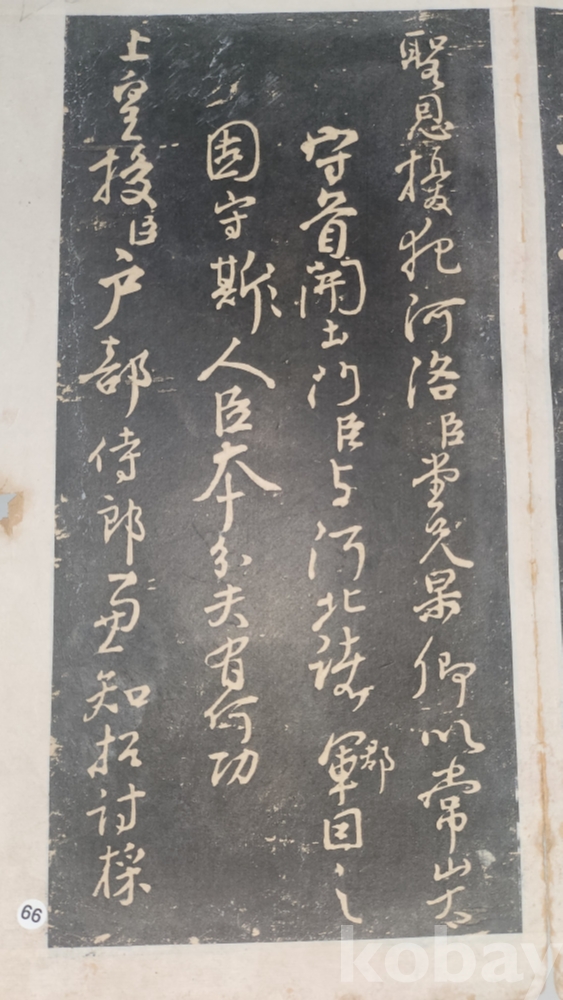 聖恩擾犯河洛臣堂兄杲卿以常山太
守首開土門臣与河北諸軍郡因之
固守斯人臣本分夫有何功
上皇授臣户部侍郎兼知招討採
66
kobay